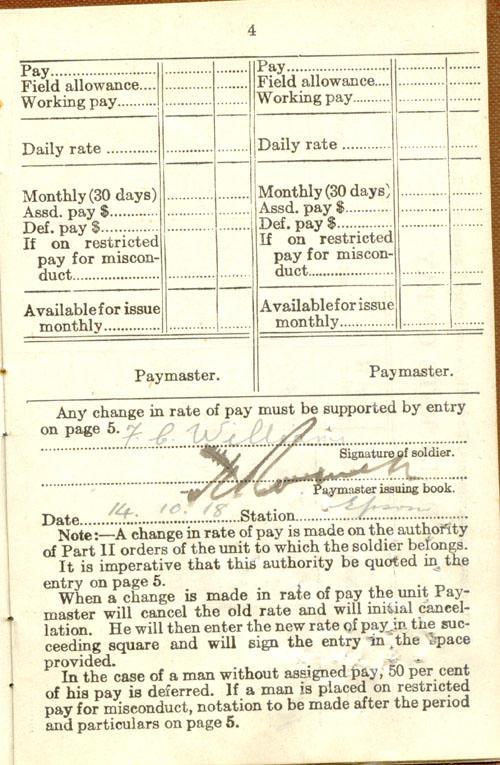 4
Pay.................... Pay....................
Field allowance.... Field allowance...
Working pay......... Working pay.........
Daily rate ............ Daily rate ............
Monthly (30 days) Monthly (30 days)
Assd. pay $........... Assd. pay $...........
Def. pay $............. Def. pay $.............
If on restricted If on restricted
pay for miscon- pay for miscon-
duct.................... duct....................
Available for issue Available for issue
monthly............. monthly.............
Paymaster. Paymaster.
Any change in rate of pay must be supported by entry
on page 5. F. C.
Signature of soldier.
Paymaster issuing book.
Date 14. 10. 18 Station Epsom
Note:—A change in rate of pay is made on the authority
of Part II orders of the unit to which the soldier belongs.
It is imperative that this authority be quoted in the
entry on page 5.
When a change is made in rate of pay the unit Pay-
master will cancel the old rate and will initial cancel-
lation. He will then enter the new rate of pay in the suc-
ceeding square and will sign the entry in the space
provided.
In the case of a man without assigned pay, 50 per cent
of his pay is deferred. If a man is placed on restricted
pay for misconduct, notation to be made after the period
and particulars on page 5.